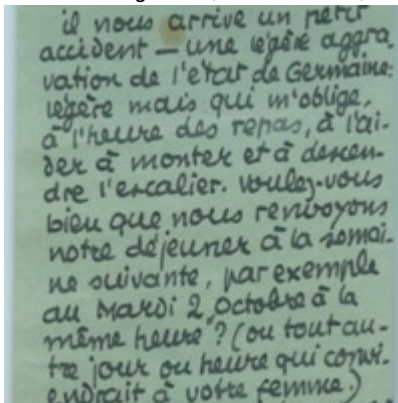 il nous arrive un petit
accident — une légère aggra
vation de l'état de Germaine:
légère mais qui m'oblige,
à l'heure des repas, à l'ai-
der à monter et à descen-
dre l'escalier. Voulez-vous
bien que nous renvoyons
notre déjeuner à la semai-
ne suivante, par exemple
au Mardi 2 Octobre à la
même heure ? (ou tout au-
tre jour ou heure qui convi-
endrait à votre femme.)